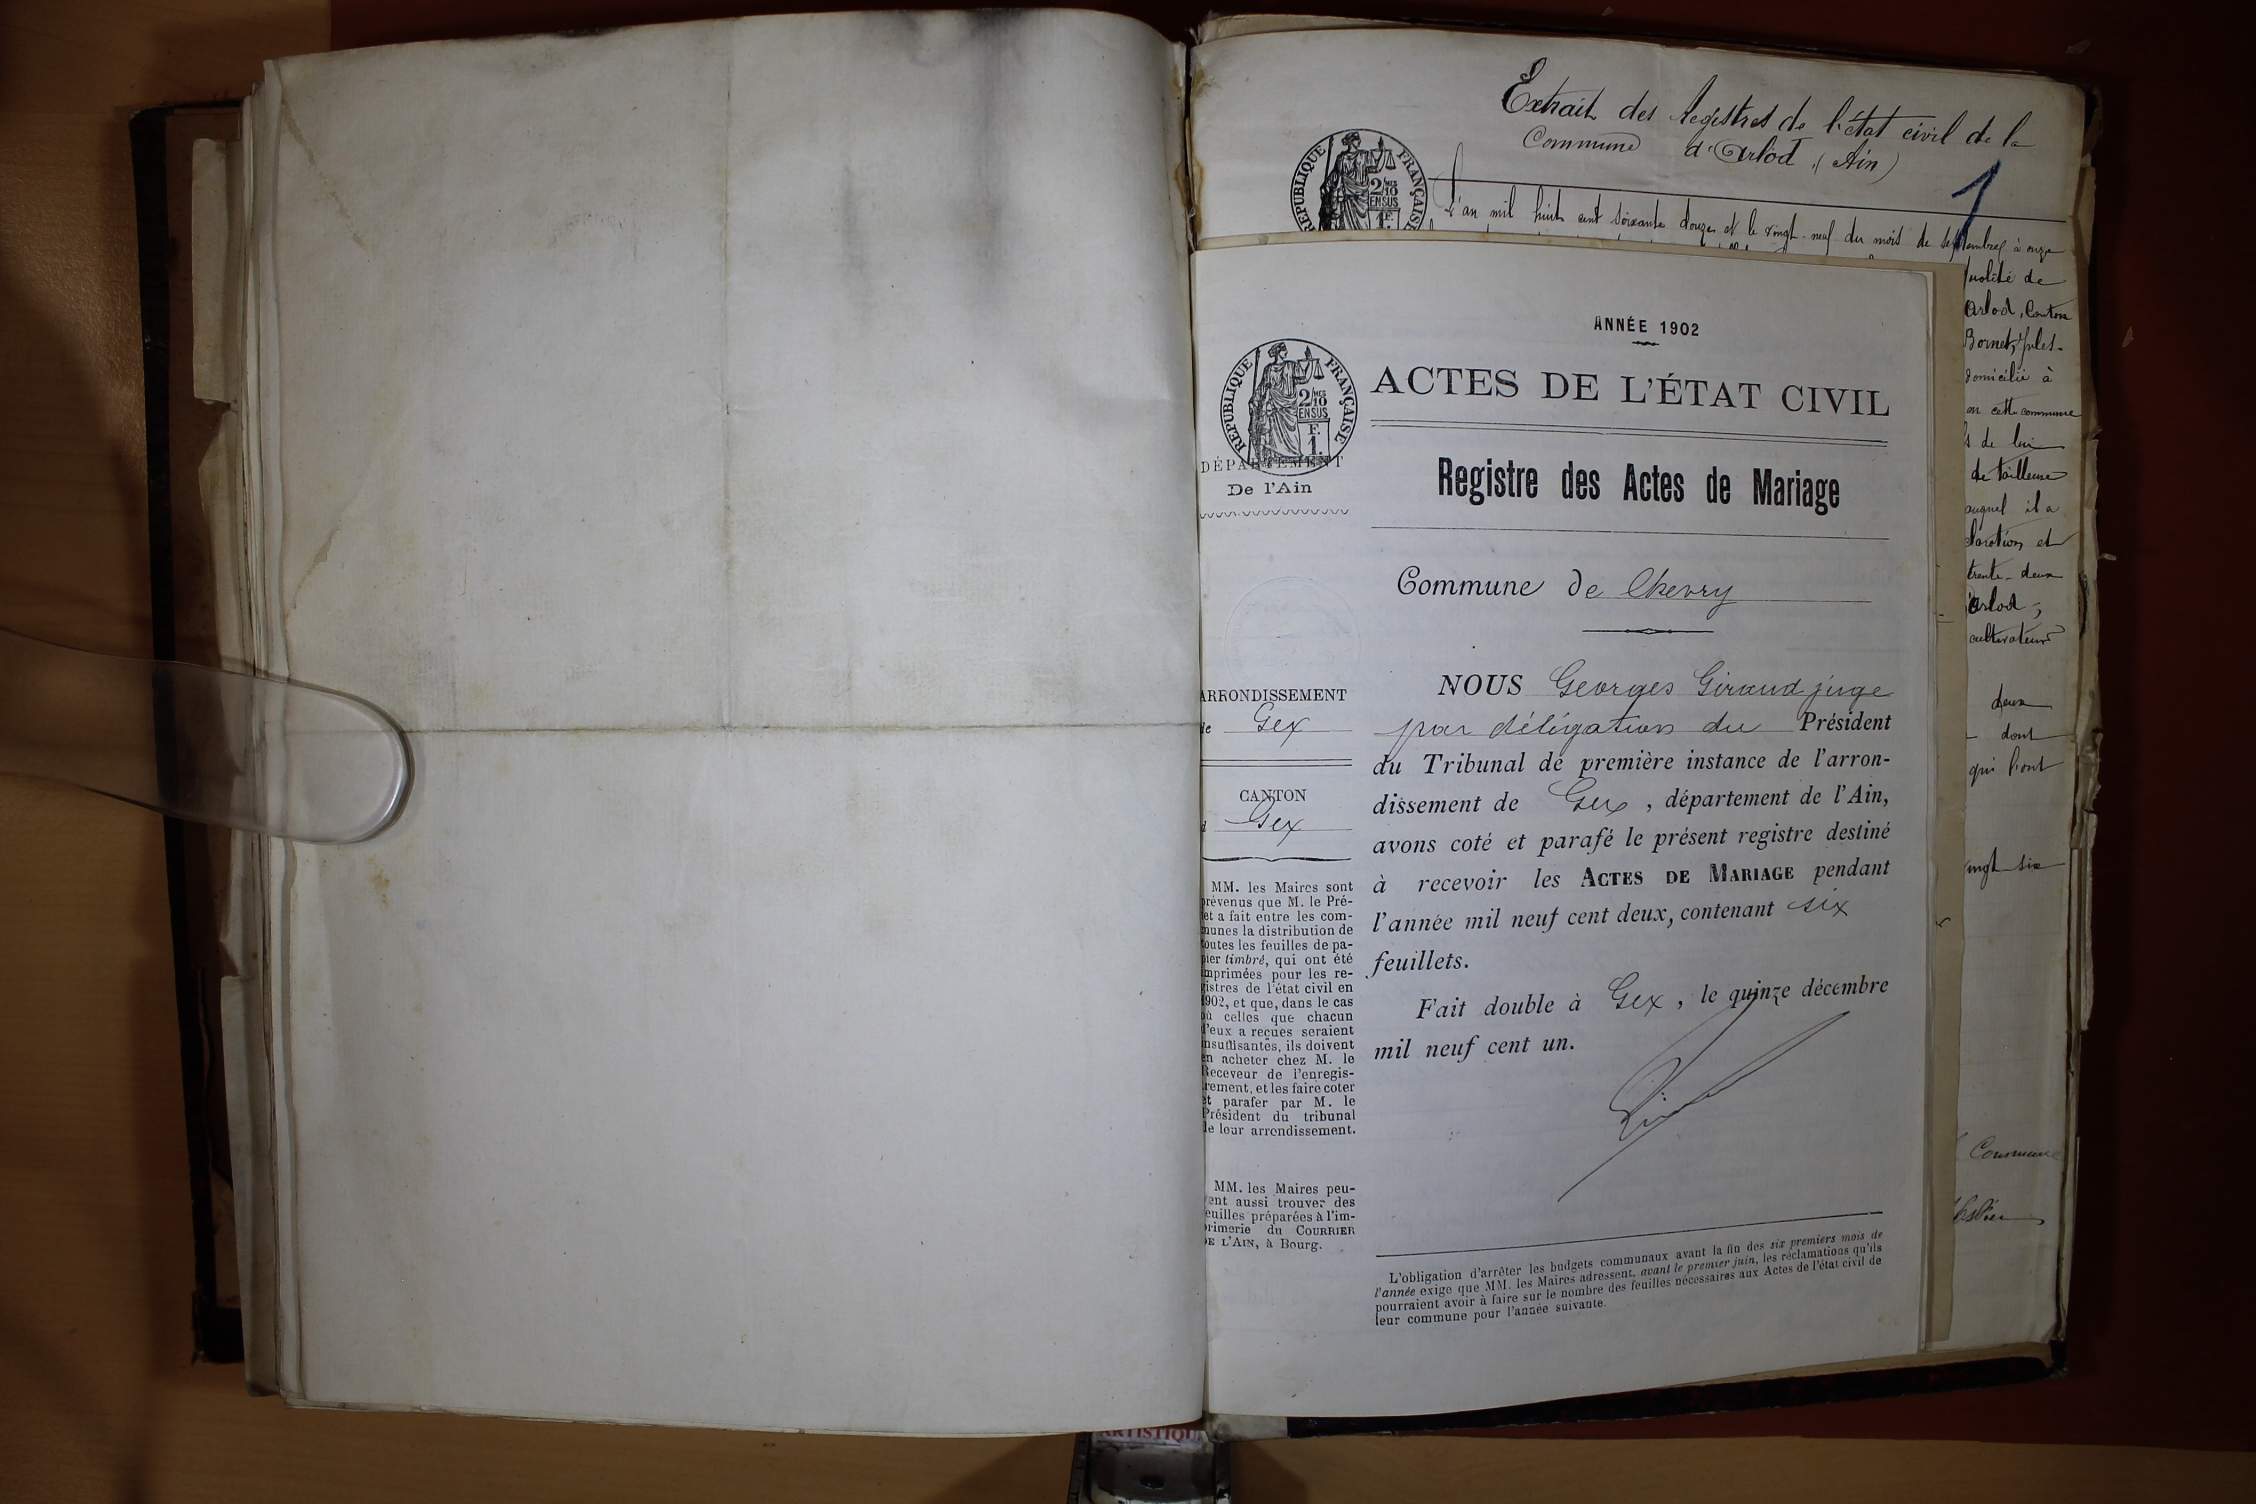 Extrait des Registres de l'état civil de la
Commune d'Arlod (Ain)
1
RÉPUBLIQUE FRANÇAISE
2/10 MES
EN SUS
1F.
L'an mil huit cent soixante douze et le vingt-neuf du mois de septembre à onze
qualité de
Arlod, Canton
Bornet, Jules-
domicilié à
en cette commune
de lui
de tailleuse
auquel il a
et
trente-deux
Arlod,
cultivateur
deux
dont
qui l'ont
vingt six
Commune
ANNÉE 1902
ACTES DE L'ÉTAT CIVIL
RÉPUBLIQUE FRANÇAISE
2/10 MES
EN SUS
F.
1.
DÉPARTEMENT
De l'Ain
Registre des Actes de Mariage
Commune de Chevry
ARRONDISSEMENT
de Gex
CANTON
d Gex
MM. les Maires sont
prévenus que M. le Pré-
fet a fait entre les com-
munes la distribution de
toutes les feuilles de pa-
pier timbré, qui ont été
imprimées pour les re-
gistres de l'état civil en
1902, et que, dans le cas
où celles que chacun
d'eux a reçues seraient
insuffisantes, ils doivent
en acheter chez M. le
Receveur de l'enregis-
trement, et les faire coter
et parafer par M. le
Président du tribunal
de leur arrondissement.
MM. les Maires peu-
vent aussi trouver des
feuilles préparées à l'im-
primerie du COURRIER
DE L'AIN, à Bourg.
NOUS Georges Giraud juge
par délégation du Président
du Tribunal de première instance de l'arron-
dissement de Gex, département de l'Ain,
avons coté et parafé le présent registre destiné
à recevoir les ACTES DE MARIAGE pendant
l'année mil neuf cent deux, contenant six
feuillets.
Fait double à Gex, le quinze décembre
mil neuf cent un.
L'obligation d'arrêter les budgets communaux avant la fin des six premiers mois de
l'année exige que MM. les Maires adressent, avant le premier juin, les réclamations qu'ils
pourraient avoir à faire sur le nombre des feuilles nécessaires aux Actes de l'état civil de
leur commune pour l'année suivante.